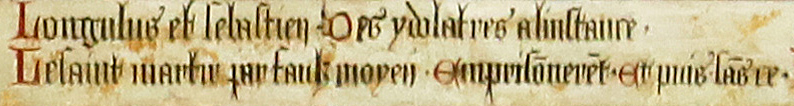 Longulus et sebastien · Des ydolatres a linstance ·
Le saint martir par faulx moyen · Emprisōnerēt · Et puis sās ce ·